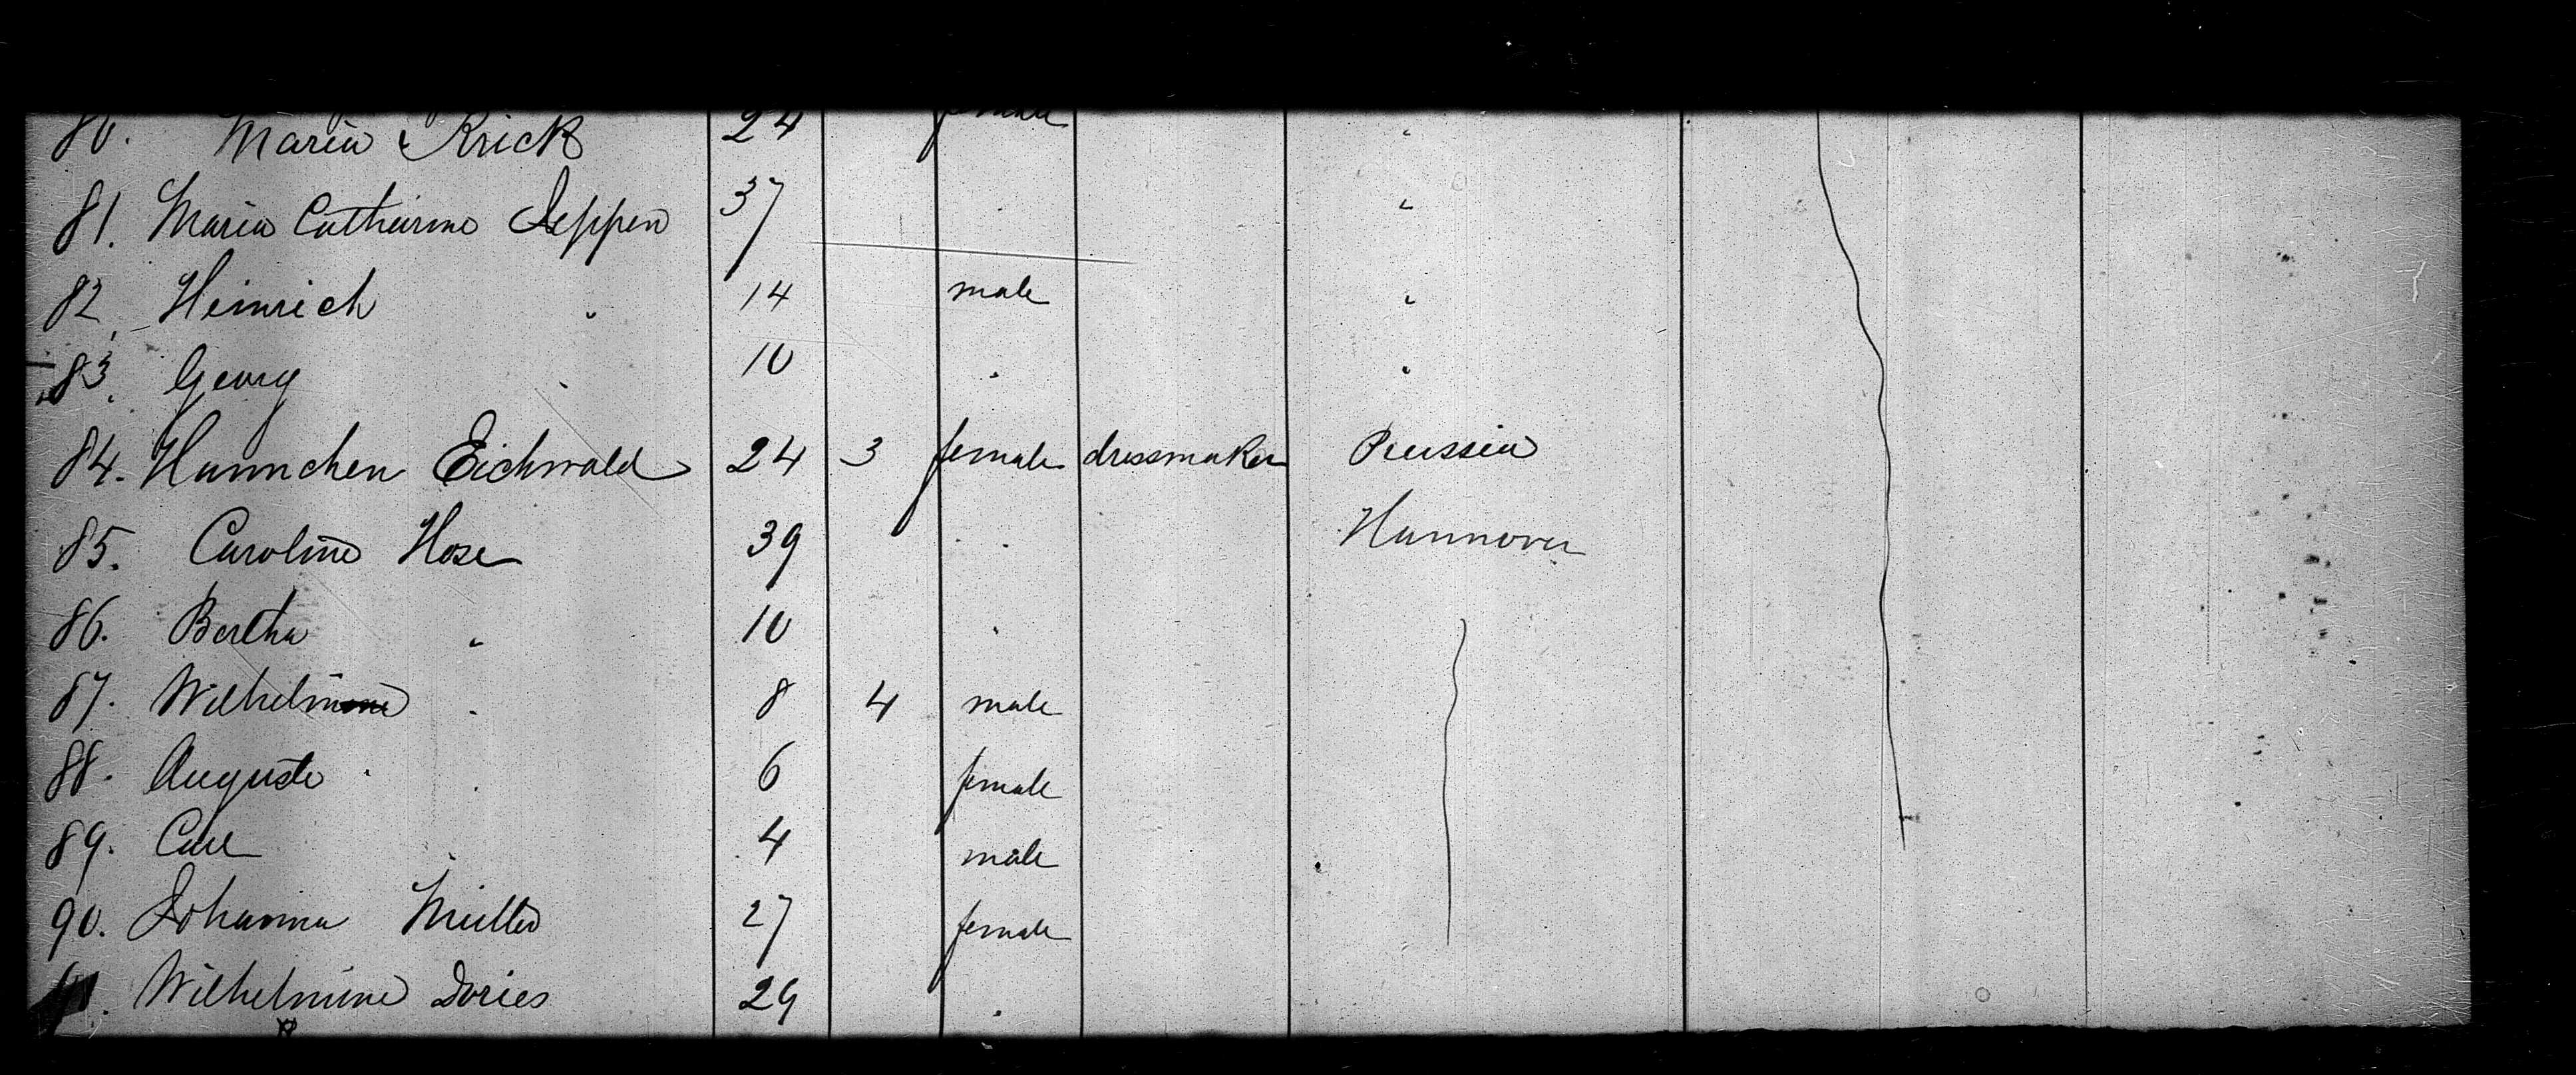 80. Maria Krick 24 female "
81. Maria Catharine Jeppen 37 . "
82. Heinrich " 14 male "
83. Georg . 10 . "
84. Hannchen Eichwald 24 3 female dressmaker Prussia
85. Caroline Hose 39 . Hannover
86. Bertha " 10 .
87. Wilhelm . 8 4 male
88. Auguste . 6 female
89. Carl . 4 male
90. Johanna Müller 27 female
91. Wilhelmine Dories 29 .